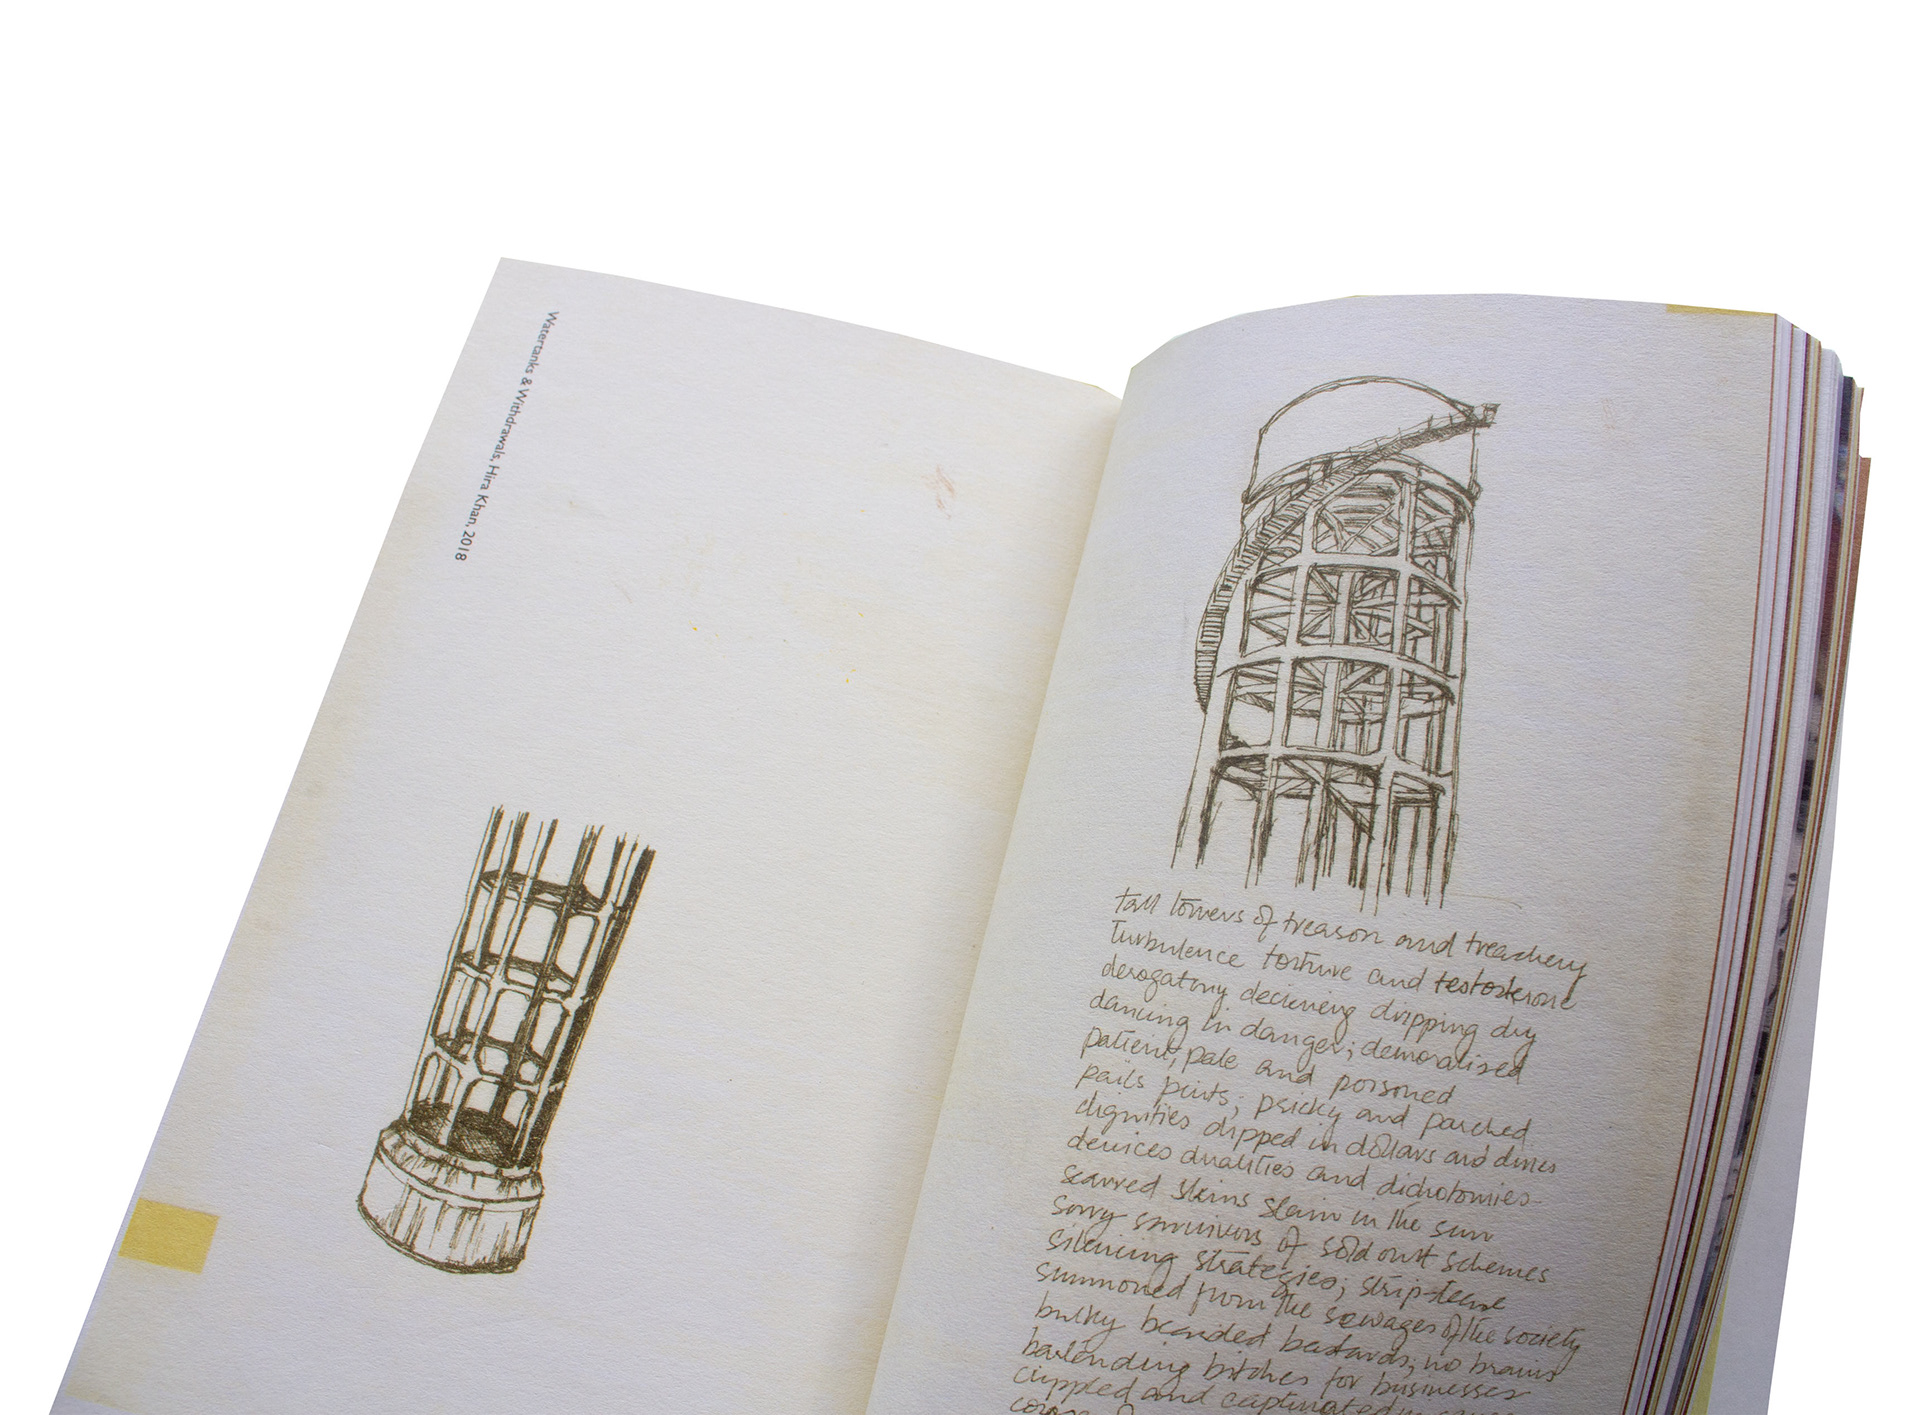 Watertanks & Withdrawals, Hira Khan, 2018
tall towers of treason and treachery
Turbulence torture and testosterone
derogatory decieving dripping dry
dancing in danger; demoralised
patient, pale and poisoned
pails pints; pricky and parched
dignities dipped in dollars and dimes
devices dualities and dichotomies
scarred skins slain in the sun
sorry survivors of sold out schemes
silencing strategies; strip-tease
summoned from the sewages of the society
bulky bearded bastards; no brains
bartending bitches for businesses
crippled and captivated in